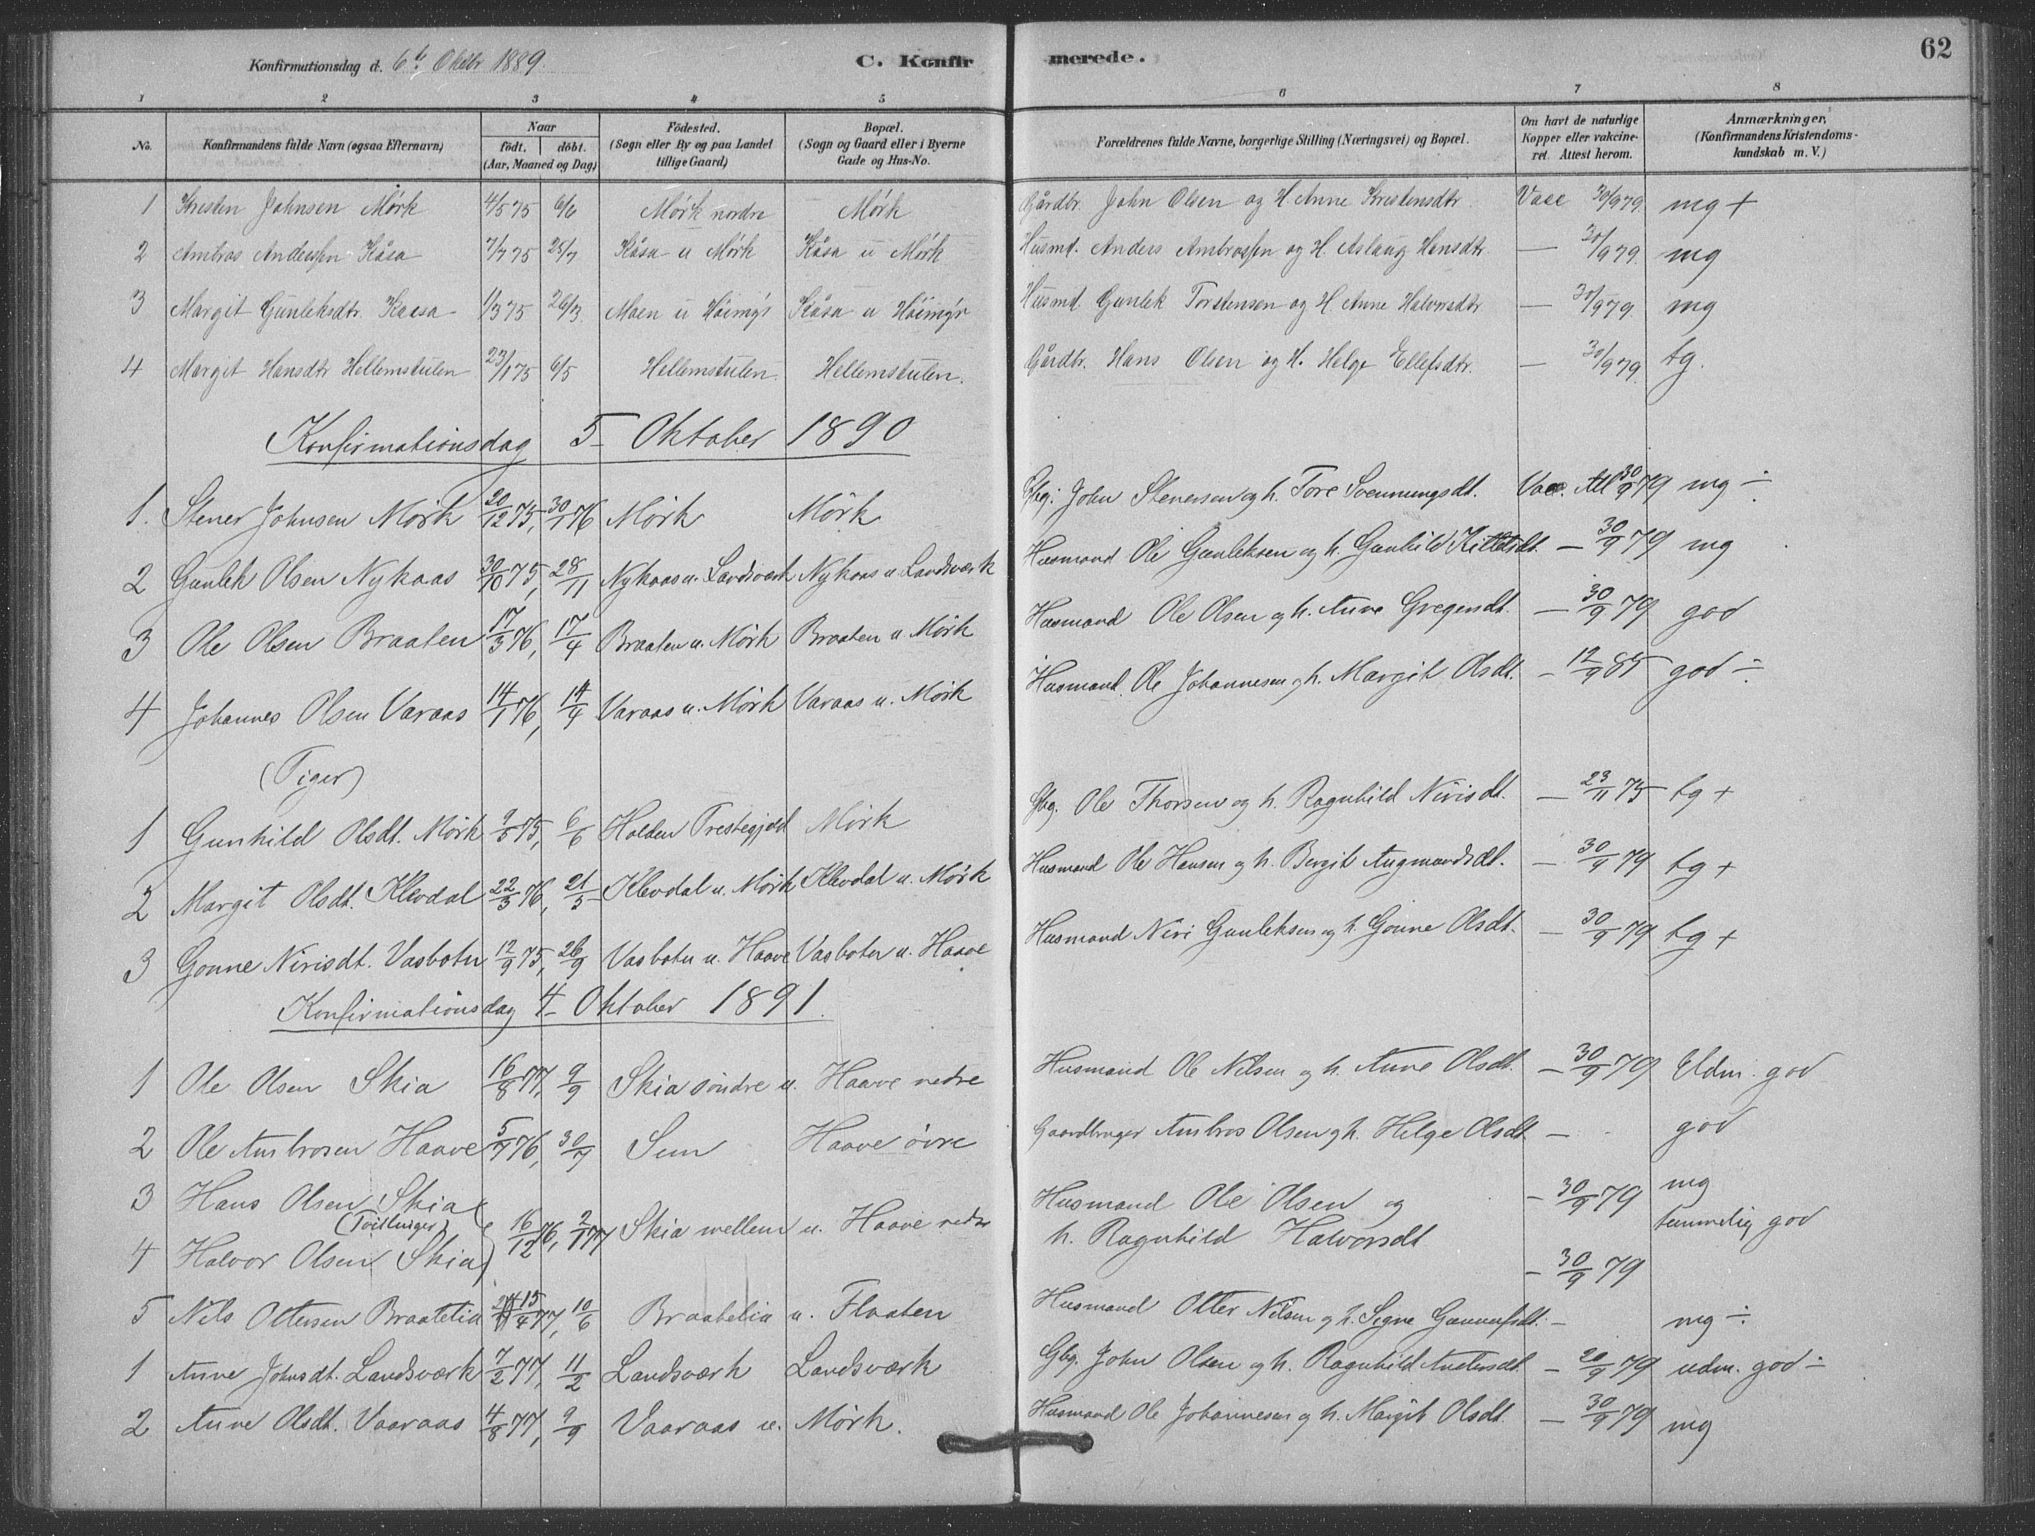 Konfirmationsdag d. 6te Oktbr 1889. C. Konfirmerede. 62
1 2 3 4 5 6 7 8
No. Konfirmandens fulde Navn (ogsaa Efternavn) Naar født. døbt. (Aar, Maaned og Dag) Fødested. (Sogn eller By og paa Landet tillige Gaard) Bopæl. (Sogn og Gaard eller i Byerne Gade og Hus-No. Forældrenes fulde Navne, borgerlige Stilling (Næringsvei) og Bopæl. Om havt de naturlige Kopper eller vakcineret. Attest herom. Anmærkninger, (Konfirmandens Kristendomskundskab m. V.)
1 Kresten Johnsen Mørk 4/5 75 6/6 Mørk nordre Mørk Gårdbr. John Olsen og H. Anne Krestensdtr. Vacc 30/9 79. mg +
2 Ambros Anderssen Kåsa 7/7 75 25/7 Kåsa u Mørk Kåsa u Mørk Husmd. Anders Ambrossen og H. Aslaug Hansdtr. — 30/9 79. mg
3 Margit Gunleksdtr. Kaasa 1/3 75 26/3. Moen u Høimyr Kåsa u Høimyr Husmd. Gunlek Torstensen og H. Anne Halvorsdtr — 30/9 79. mg
4 Margit Hansdtr Hellemstulen 23/1 75 6/5 Hellemstulen. Hellemstulen. Gårdbr. Hans Olsen og H. Helge Ellefsdtr. — 30/9 79. tg.
Konfirmationsdag 5– Oktober 1890
1. Stener Johnsen Mørk 20/12 75, 30/1 76 Mørk Mørk Gbg: John Stenersen og h. Tore Svenningsdt. Vacc. Att 30/9 79 mg ÷
2 Gunlek Olsen Nykaas 30/10 75, 28/11 Nykaas u. Landsværk Nykaas u. Landsværk Husmand Ole Gunleksen og h. Gunhild Kittelsdt. — 30/9 79 mg
3 Ole Olsen Braaten 17/3 76, 17/4 Braaten u. Mørk Braaten u. Mørk Husmand Ole Olsen og h. Anne Gregersdt. — 30/9 79 god
4 Johannes Olsen Varaas 14/1 76, 14/4 Varaas u. Mørk Varaas u. Mørk Husmand. Ole Johannesen og h. Margit Olsdt. — 12/9 85 god ÷
(Piger)
1 Gunhild Olsdt. Mørk 9/5 75, 6/6 Holden Prestegjeld Mørk Gbg. Ole Thorsen og h. Ragnhild Nirisdt. — 23/11 75 tg +
2 Margit Olsdt. Klevdal 22/3 76, 21/5 Klevdal u. Mørk Klevdal u. Mørk Husmand Ole Hansen og h. Bergit Augmundsdt. — 30/9 79 tg +
3 Gonne Nirisdt. Vasboten 12/9 75, 26/9 Vasboten u. Haave Vasboten u. Haave Husmand Niri Gunleksen og h. Gonne Olsdt. — 30/9 79 tg +
Konfirmationsdag 4– Oktober 1891.
1 Ole Olsen Skia 16/8 77, 9/9 Skia søndre u. Haave nedre Husmand Ole Nilsen og h. Anne Olsdt. — 30/9 79 Udm. god
2 Ole Ambrosen Haave 5/7 76, 30/7 Sem Haave øvre Gaardbruger Ambros Olsen og h. Helge Olsdt — god
3 Hans Olsen Skia Husmand Ole Olsen og — 30/9 79 mg
(Tvillinger) 16/12 76, 2/1 77 Skia mellem u. Haave nedre temmelig god
4 Halvor Olsen Skia h. Ragnhild Halvorsdt — 30/9 79
5 Nils Ottersen Braatelia 15/4 77, 10/6 Braatelia u. Flaaten Husmand Otter Nilsen og h. Signe Gunnufsdt. — mg ÷
1 Anne Johnsdt. Landsværk 7/2 77, 11/2 Landsværk Landsværk Gbg. John Olsen og h. Ragnhild Andersdt — 20/9 79 udm. god ÷
2 Anne Olsdt. Vaaraas 4/8 77, 9/9 Vaaraas u. Mørk. Husmand Ole Johannesen og h. Margit Olsdt. — 30/9 79 mg